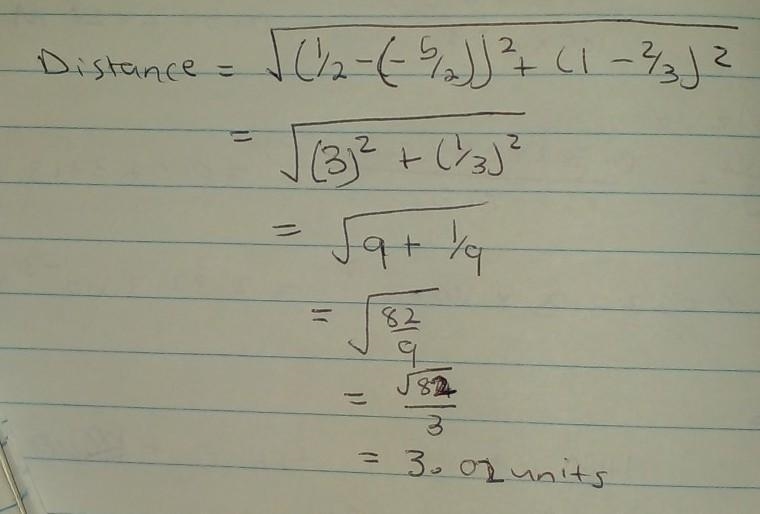 Distance = √(1/2 - (-5/2))² + (1 - 2/3)²
= √(3)² + (1/3)²
= √9 + 1/9
= √82/9
= √82/3
= 3.02 units